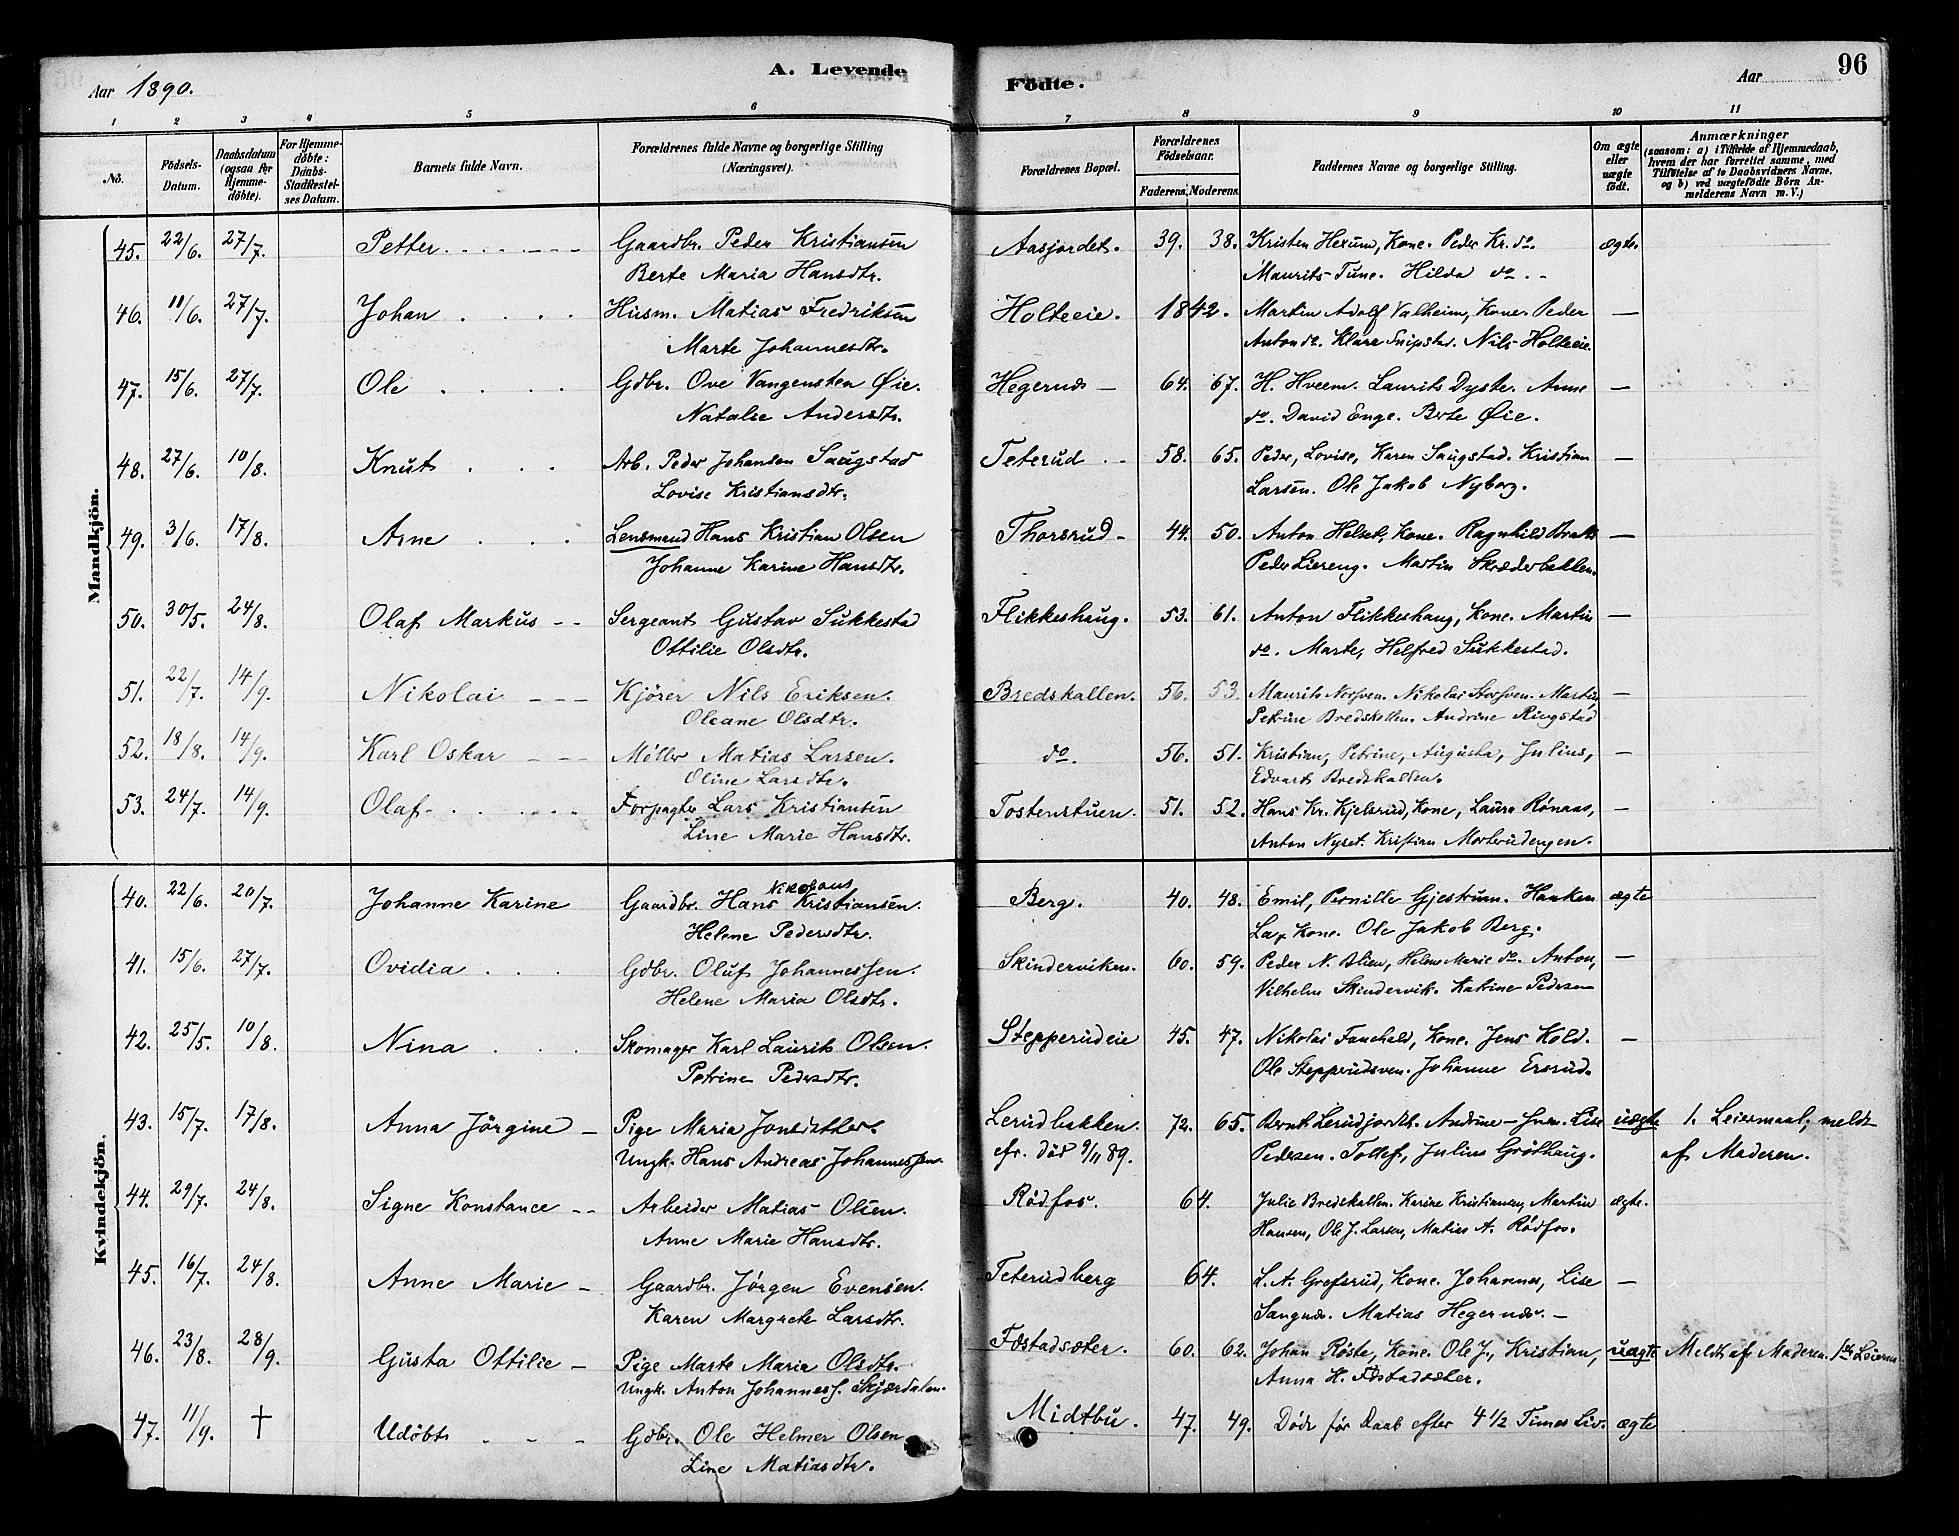 Aar 1890.
A. Levende
Födte.
Aar
96
1 2 3 4 5 6 7 8 9 10 11
No.
Födsels-Datum.
Daabsdatum (ogsaa for Hjemme-döbte).
For Hjemme-döbte: Daabs-Stadfæstel-ses Datum.
Barnets fulde Navn.
Forældrenes fulde Navne og borgerlige Stilling (Næringsvei).
Forældrenes Bopæl.
Forældrenes Födselsaar.
Faderens. Moderens.
Faddernes Navne og borgerlige Stilling.
Om ægte eller uægte födt.
Anmærkninger (saasom: a) i Tilfælde af Hjemmedaab, hvem der har forrettet samme, med Tilföielse af to Daabsvidners Navne, og b) ved uægtefödte Börn An-melderens Navn m. V.)
Mandkjön.
45. 22/6. 27/7. Petter Gaardbr. Peder Kristiansen Aasjordet. 39. 38. Kristen Hexum, Kone. Peder Kr. do. ægte.
Berte Maria Hansdtr. Maurits Tune. Hilda do.
46. 11/6. 27/7. Johan Husm. Matias Fredriksen Holteeie. 1842. Martin Adolf Valheim, Kone. Peder —
Marte Johannesdtr. Anton do. Klara Snipstad. Nils Holteeie.
47. 15/6. 27/7. Ole Gdbr. Ove Vangensten Øie. Hegernæs — 64. 67. H. Hveem. Laurits Dyste. Anne —
Natalie Andersdtr. do. David Enge. Berte Øie.
48. 27/6. 10/8. Knut Arb. Peder Johansen Saugstad Teterud 58. 65. Peder, Lovise, Karen Saugstad. Kristian —
Lovise Kristiansdtr. Larsen. Ole Jakob Nyborg.
49. 3/6. 17/8. Arne Lensmand Hans Kristian Olsen Thorsrud 44. 50. Anton Helset, Kone. Ragnhild Bratt —
Johanne Karine Hansdtr. Peder Liereng. Martin Skræderbakken.
50. 30/5. 24/8. Olaf Markus Sergeant Gustav Sukkestad Flikkeshaug. 53. 61. Anton Flikkeshaug, Kone. Martin —
Ottilie Olsdtr. do. Marte, Helfred Sukkestad.
51. 22/7. 14/9. Nikolai Kjörer Nils Eriksen. Bredskallen. 56. 53. Maurits Norsven. Nikolai Storsven. Martin, —
Oleane Olsdtr. Petrine Bredskallen. Andrine Ringstad
52. 18/8. 14/9. Karl Oskar Møller Matias Larsen. do. 56. 51. Kristian, Petrine, Augusta, Julius, —
Oline Larsdtr. Edvart Bredskallen.
53. 24/7. 14/9. Olaf Forpagter Lars Kristiansen Tostenstuen. 51. 52. Hans Kr. Kjelsrud, Kone, Laura Rönaas, —
Line Marie Hansdtr. Anton Nyset. Kristian Morterudengen.
Kvindekjön.
40. 22/6. 20/7. Johanne Karine Gaardbr. Hans Nikolaus Kristiansen. Berg. 40. 48. Emil, Pernille Gjestrum. Haaken ægte
Helene Pedersdtr. Lax Kone. Ole Jakob Berg.
41. 15/6. 27/7. Ovidia Gdbr. Oluf Johannessen. Skinderviken. 60. 59. Peder N. Blien, Helene Marie do. Anton, —
Helene Maria Olsdtr. Vilhelm Skindervik. Katrine Pedersen
42. 25/5. 10/8. Nina Skomager Karl Laurits Olsen. Stepperudeie 45. 47. Nikolai Fauchald, Kone. Jens Kold. —
Petrine Pedersdtr. Ole Stepperudsven. Johanne Ersrud.
43. 15/7. 17/8. Anna Jörgine Pige Maria Jonsdatter. Lerudbakken. 72. 65. Bernt Lerudjordet. Andrine Lise uægte 1. Leiermaal, meldt
Ungk. Hans Andreas Johannessen. efr. död 9/11 89. Pedersen. Tollef, Julius Gröthaug. af Moderen.
44. 29/7. 24/8. Signe Konstance Arbeider Matias Olsen. Rödfos. 64. Julie Bredskallen. Karine Kristiansen, Martin ægte.
Anne Marie Hansdtr. Hansen, Ole J. Larsen, Matias A. Rödfos.
45. 16/7. 24/8. Anne Marie Gaardbr. Jörgen Evensen. Teterudberg 64. L. A. Grefsrud, Kone. Johannes, Lise —
Karen Margrete Larsdtr. Sangnæs. Matias Hegernæs.
46. 23/8. 28/9. Gusta Ottilie Pige Marte Maria Olsdtr. Fostadsæter. 60. 62. Johan Röste, Kone. Ole J., Kristian, uægte Meldt af Moderen. 1ste Leierm
Ungk. Anton Johanness. Skjærdalen. Anna H. Fostadsæter.
47. 11/9. † Udöbt Gdbr. Ole Helmer Olsen Midtbu. 47. 49. Döde för Daab efter 4 1/2 Times Liv. ægte
Line Matiasdtr.